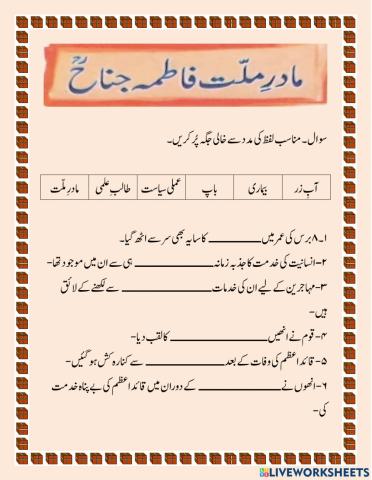 مادرِ ملّت فاطمہ جناحؒ
سوال۔ مناسب لفظ کی مدد سے خالی جگہ پُر کریں۔
آبِ زر بیماری باپ عملی سیاست طالبِ علمی مادرِ ملّت
۱۔۸ برس کی عمر میں ـــــــــــــــ کا سایہ بھی سر سے اٹھ گیا۔
۲-انسانیت کی خدمت کا جذبہ زمانہ ـــــــــــــــ ہی سے ان میں موجود تھا-
۳-مہاجرین کے لیے ان کی خدمات ـــــــــــــــ سے لکھنے کے لائق
ہیں-
۴- قوم نے انھیں ـــــــــــــــ کا لقب دیا-
۵- قائد اعظم کی وفات کے بعد ـــــــــــــــ سے کنارہ کش ہو گئیں-
۶-انھوں نے ـــــــــــــــ کے دوران میں قائد اعظم کی بے پناہ خدمت
کی-
LIVEWORKSHEETS